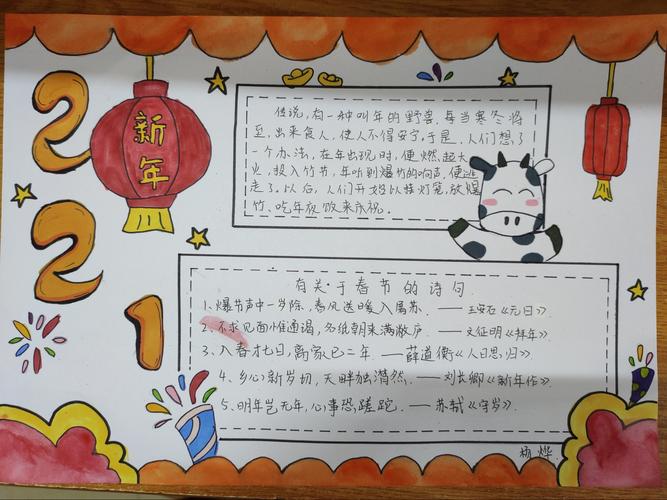 2021
新年
传说，有一种叫年的野兽，每当寒冬将
至，出来食人，使人不得安宁，于是，人们想了
一个办法，在年出现时，便燃起大
火，投入竹节，年听到爆竹的响声，便逃
走了。以后，人们开始以挂灯笼，放爆
竹、吃年夜饭来庆祝。
有关于春节的诗句
1、爆节声中一岁除，春风送暖入屠苏。——王安石《元日》
2、不求见面惟通谒，名纸朝来满敝庐——文征明《拜年》
3、入春才七日，离家已二年——薛道衡《人日思归》
4、乡心新岁切，天畔独潸然。——刘长卿《新年作》
5、明年岂无年，心事恐蹉跎.——苏轼《守岁》
杨烨